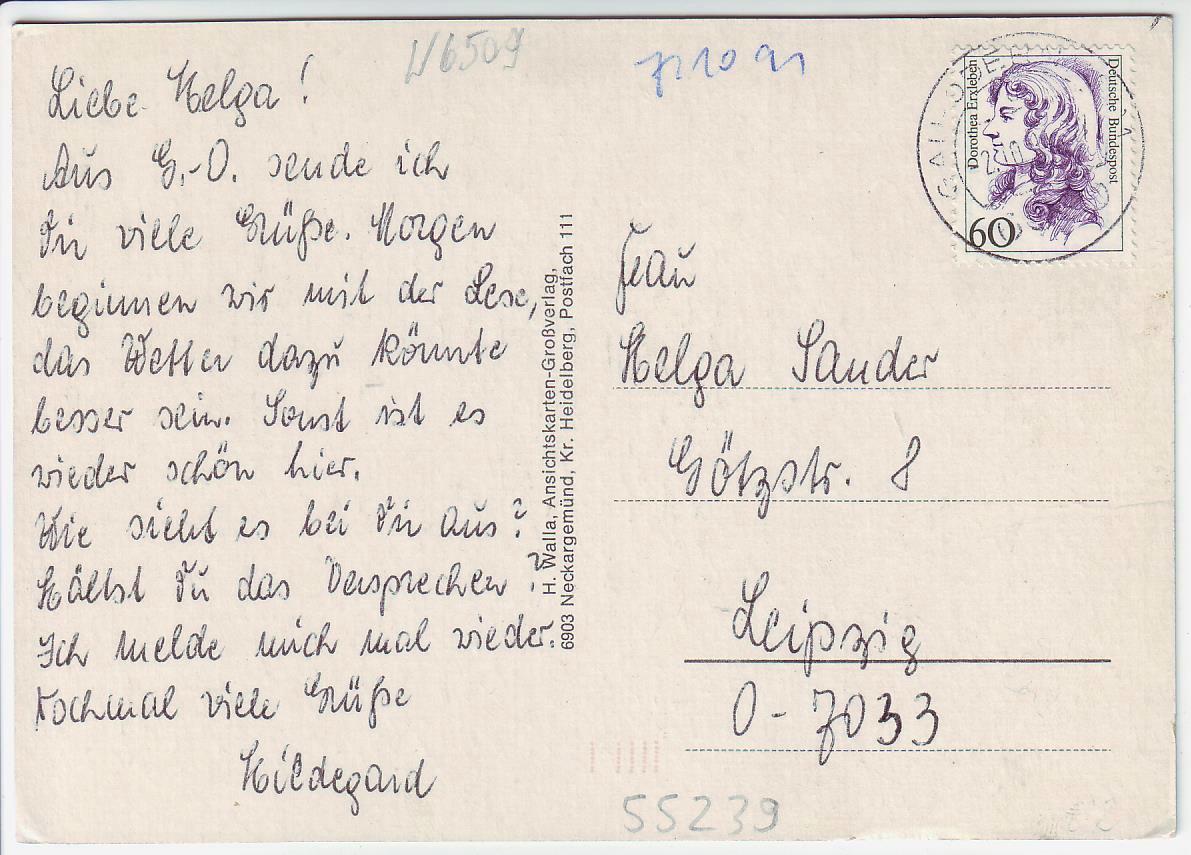 W6509
Liebe Helga!
Aus G.-O. sende ich
Dir viele Grüße. Morgen
beginnen wir mit der Lese,
das Wetter dazu könnte
besser sein. Sonst ist es
wieder schön hier.
Wie sieht es bei Dir aus?
Hältst Du das Versprechen?
Ich melde mich mal wieder.
Nochmal viele Grüße
Hildegard
H. Walla, Ansichtskarten-Großverlag,
6903 Neckargemünd, Kr. Heidelberg, Postfach 111
Dorothea Erxleben
Deutsche Bundespost
60
Frau
Helga Sander
Götzstr. 8
Leipzig
O-7033
55239